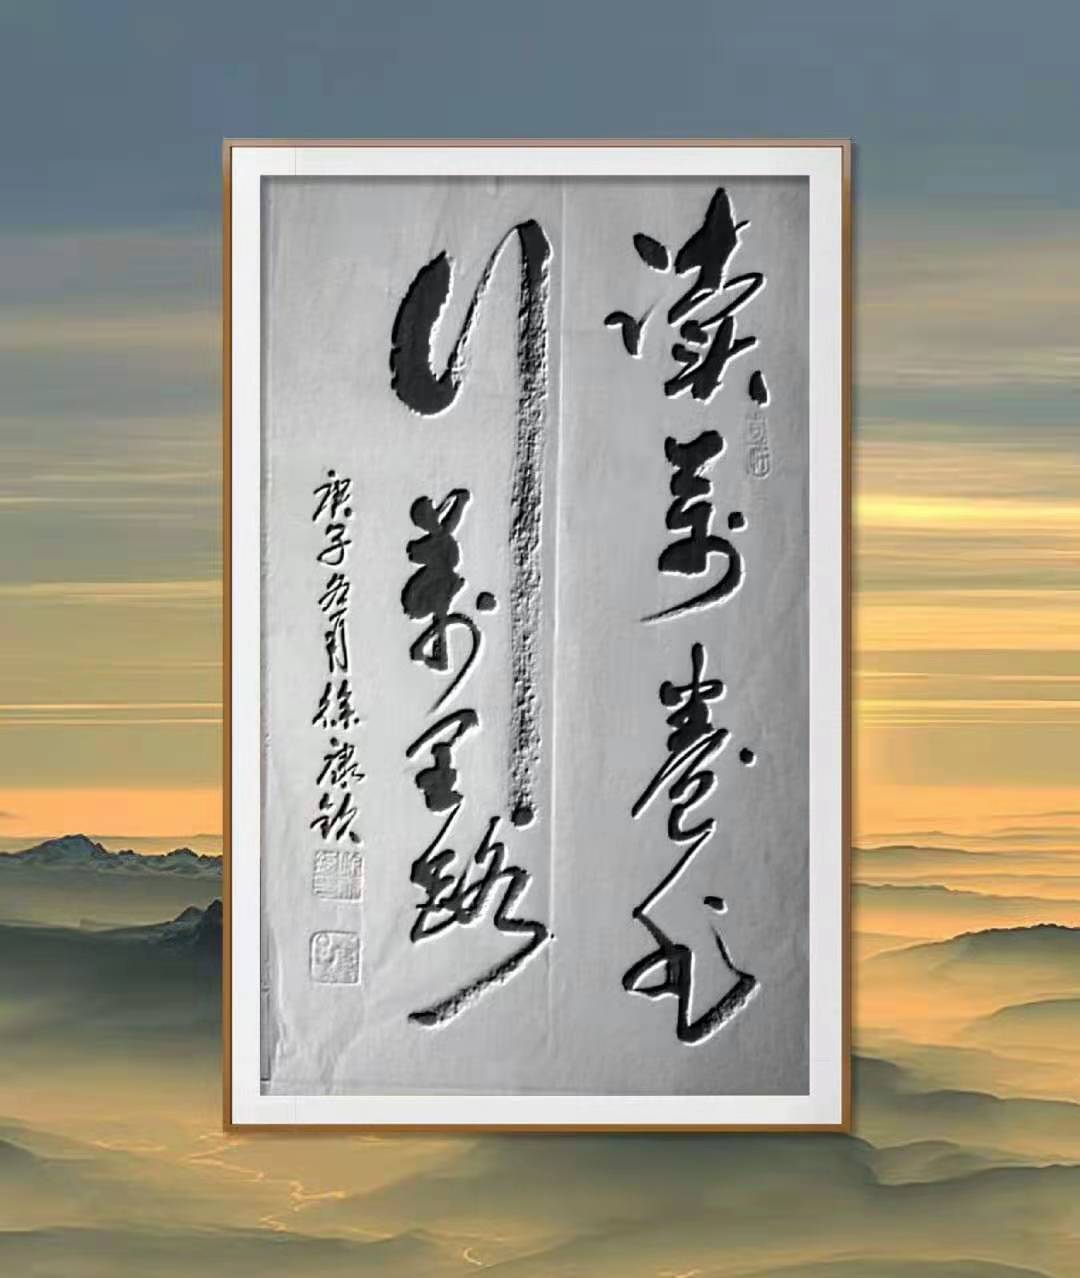 读万卷书
行万里路
庚子冬月徐康钦